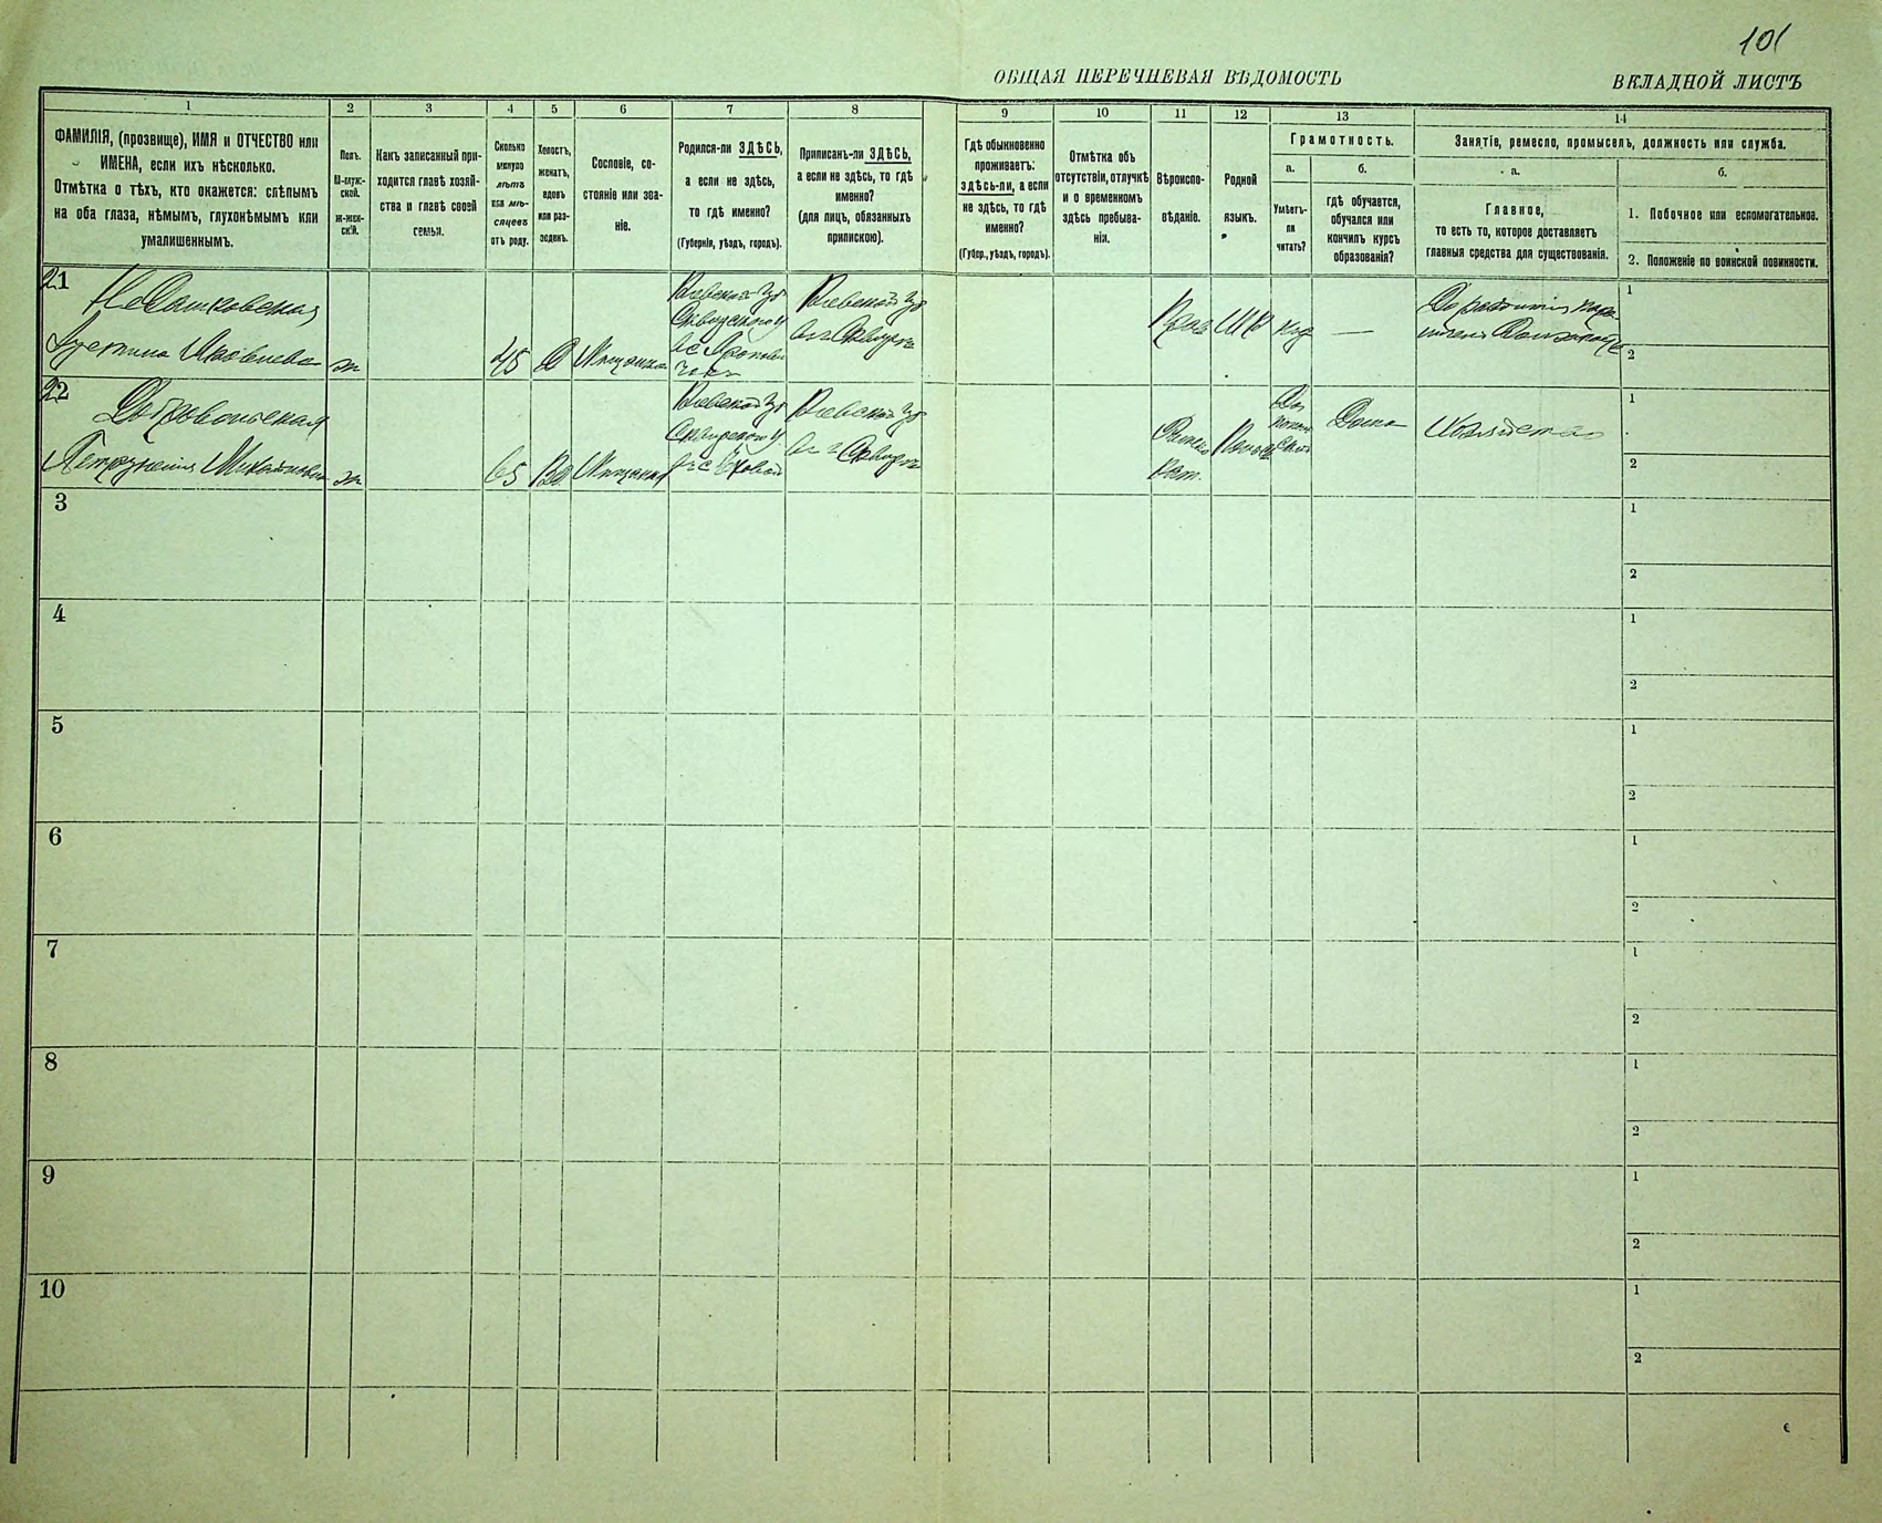 101
ОБЩАЯ ПЕРЕЧНЕВАЯ ВѢДОМОСТЬ
ВКЛАДНОЙ ЛИСТЪ
1
2
3
4
5
6
7
8
9
10
11
12
13
14
ФАМИЛІЯ, (прозвище), ИМЯ и ОТЧЕСТВО или
ИМЕНА, если ихъ нѣсколько.
Отмѣтка о тѣхъ, кто окажется: слѣпымъ
на оба глаза, нѣмымъ, глухонѣмымъ или
умалишеннымъ.
Полъ.
М-муж-
ской.
Ж-жен-
скій.
Какъ записанный при-
ходится главѣ хозяй-
ства и главѣ своей
семьи.
Сколько
минуло
лѣтъ
или мѣ-
сяцевъ
отъ роду.
Холостъ,
женатъ,
вдовъ
или раз-
веденъ.
Сословіе, со-
стояніе или зва-
ніе.
Родился-ли ЗДѢСЬ,
а если не здѣсь,
то гдѣ именно?
(Губернія, уѣздъ, городъ).
Приписанъ-ли ЗДѢСЬ,
а если не здѣсь, то гдѣ
именно?
(для лицъ, обязанныхъ
припискою).
Гдѣ обыкновенно
проживаетъ:
здѣсь-ли, а если
не здѣсь, то гдѣ
именно?
(Губер., уѣздъ, городъ).
Отмѣтка объ
отсутствіи, отлучкѣ
и о временномъ
здѣсь пребыва-
ніи.
Вѣроиспо-
вѣданіе.
Родной
языкъ.
Грамотность.
а.
Умѣетъ-
ли
читать?
б.
гдѣ обучается,
обучался или
кончилъ курсъ
образованія?
Занятіе, ремесло, промыселъ, должность или служба.
а.
Главное,
то есть то, которое доставляетъ
главныя средства для существованія.
б.
1. Побочное или вспомогательное.
2. Положеніе по воинской повинности.
21
Яковлева
ж
45
Д
Мѣщанка
Кіевской Губ
Сквирскаго у
Кіевской Губ
въ г Сквирѣ
Прав
—
1
2
22
Добровольская
ж
65
Вд
Мѣщанка
Кіевской Губ
Сквирскаго у
Кіевской Губ
въ г Сквирѣ
Римско
Кат.
Дома
Хозяйство
1
2
3
1
2
4
1
2
5
1
2
6
1
2
7
1
2
8
1
2
9
1
2
10
1
2